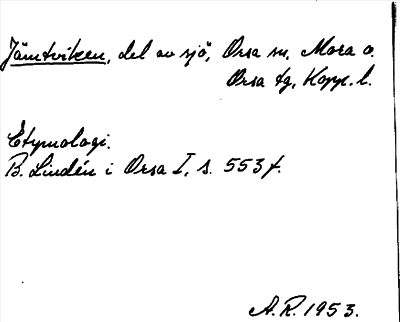 Jämtviken, del av sjö, Orsa sn, Mora o.
Orsa tg, Kopp. l.
Etymologi.
B. Lindén i Orsa I, s. 553 f.
A.R. 1953.